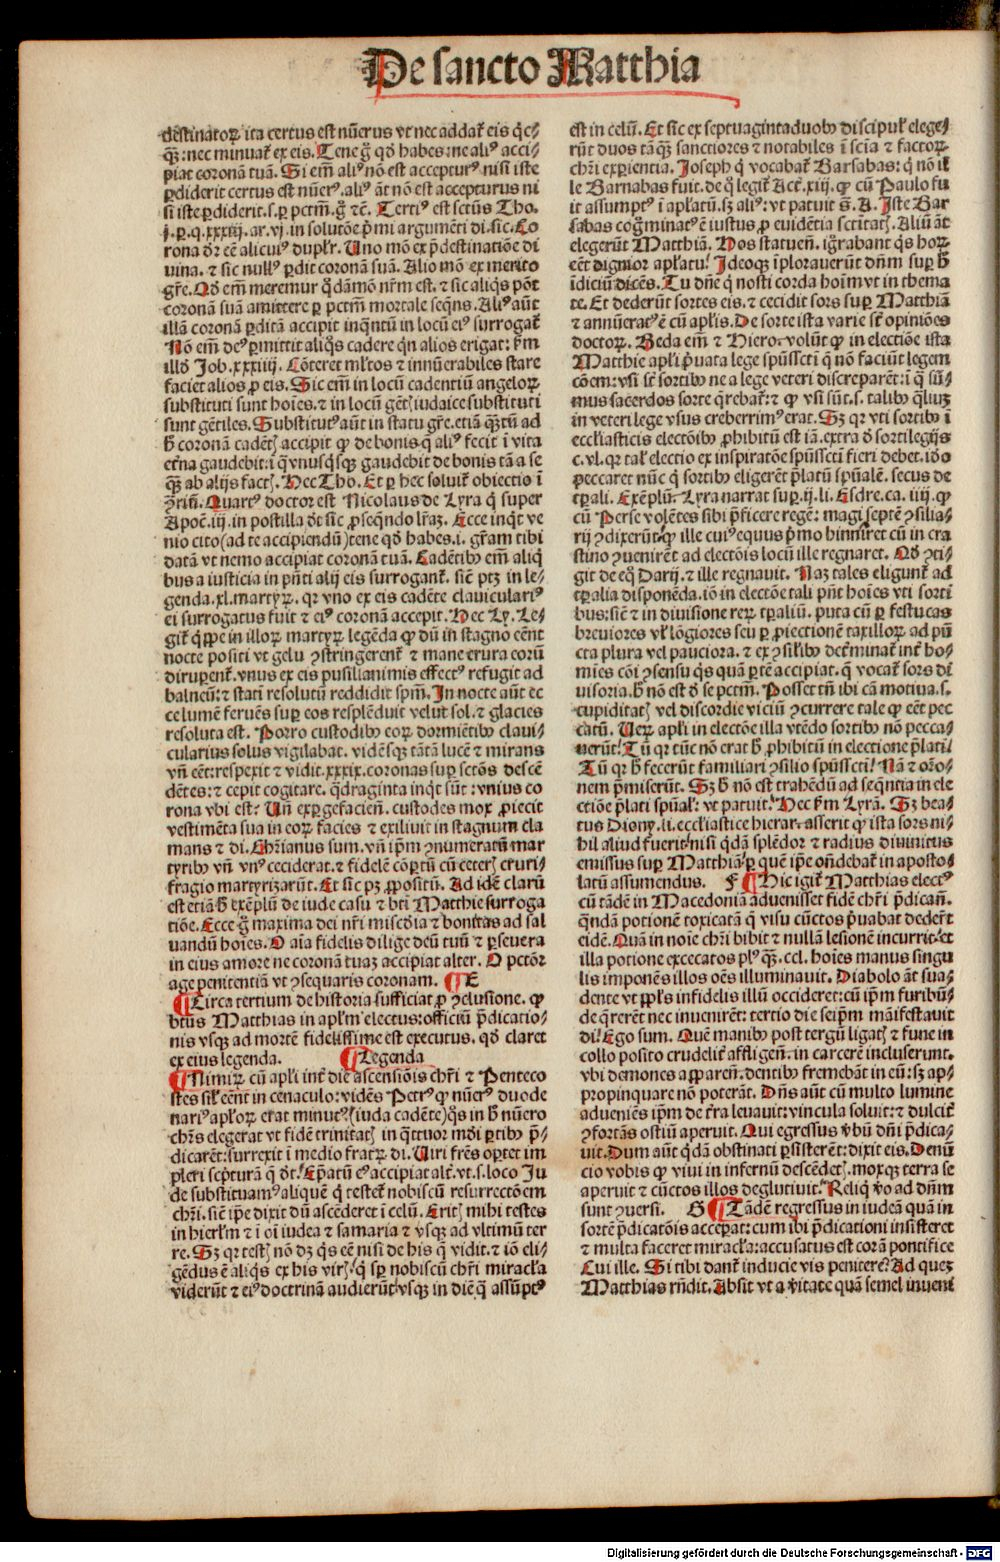 De sancto Matthia
destinatoꝝ ita certus est nũerus vt nec addat̃ eis q̃c⸗
q̃ꝫ: nec minuat̃ ex eis. Tene g̃ qd̃ habes: ne aliꝰ acci⸗
piat coronã tuã. Si em̃ aliꝰ nõ est accepturꝰ nisi iste
ꝑdiderit certus est nũerꝰ. aliꝰ ãt nõ est accepturus ni
si iste ꝑdiderit. s. ꝑ pctm̃. g̃ ⁊c̃. Tertiꝰ est sctũs Tho.
j. p. q. xxxiij. ar. vj. in solutõe p̃mi argumẽti di. sic. Co
rona dr̃ eẽ alicuiꝰ dupl̃r. Uno mõ ex p̃destinatiõe di
uina. ⁊ sic nullꝰ ꝑdit coronã suã. Alio mõ ex merito
gr̃e. Qd̃ em̃ meremur q̃dãmõ nr̃m est. ⁊ sic aliqs põt
coronã suã amittere ꝑ pctm̃ mortale seq̃ns. Aliꝰ aũt
illã coronã ꝑditã accipit inq̃ntũ in locũ eiꝰ surrogat̃
Nõ em̃ deꝰ ꝑmittit aliq̃s cadere q̃n alios erigat: s̃m
illd̃ Job. xxxiiij. Cõteret ml̃tos ⁊ innũerabiles stare
faciet alios ꝓ eis. Sic em̃ in locũ cadentiũ angeloꝝ
substituti sunt hoĩes. ⁊ in locũ gẽtꝭ iudaice substituti
sunt gẽtiles. Substitutꝰ aũt in statu gr̃e. etiã q̃ꝫtũ ad
h̃ coronã cadẽtꝭ accipit ꝙ de bonis q̃ aliꝰ fecit ĩ vita
et̃na gaudebit: ĩ q̃ vnusq̃sqꝫ gaudebit de bonis tã a se
q̃ꝫ ab alijs factꝭ. Hec Tho. Et ꝑ hec soluit̃ obiectio ĩ
ꝯ̃riũ. Quartꝰ doctor est Nicolaus de Lyra q̃ super
Apoc̃. iij. in postilla d̃t sic ꝓseq̃ndo lr̃aꝫ. Ecce inq̃t ve
nio cito (ad te accipiendũ) tene qd̃ habes. i. gr̃am tibi
datã vt nemo accipiat coronã tuã. Cadẽtibꝰ em̃ aliq̃
bus a iusticia in pñti alij eis surrogant̃. sic̃ ptꝫ in le⸗
genda. xl. martyꝝ. qr vno ex eis cadẽte clauiculariꝰ
ei surrogatus fuit ⁊ eiꝰ coronã accepit. Hec Ly. Le⸗
git̃ q̃ppe in illoꝝ martyꝝ legẽda ꝙ dũ in stagno eẽnt
nocte positi vt gelu ꝯstringerent̃ ⁊ mane crura eorũ
dirupent̃. vnus ex eis pusillanimis effectꝰ refugit ad
balneũ: ⁊ stati resolutũ reddidit spm̃. In nocte aũt ec
ce lumẽ feruẽs suꝑ eos resplẽduit velut sol. ⁊ glacies
resoluta est. Porro custodibꝰ eoꝝ dormiẽtibꝰ claui⸗
cularius solus vigilabat. vidẽsqꝫ tãtã lucẽ ⁊ mirans
vñ eẽt: respexit ⁊ vidit. xxxix. coronas suꝑ sctõs descẽ
dẽtes: ⁊ cepit cogitare. q̃draginta inq̃t sũt: vnius co
rona vbi est: Uñ exꝑgefacieñ. custodes mox ꝓiecit
vestimẽta sua in eoꝝ facies ⁊ exiliuit in stagnum cla
mans ⁊ di. Chr̃ianus sum. vñ ip̃m ꝯnumeratũ mar
tyribꝰ vñ vnꝰ ceciderat. ⁊ fidelẽ cõꝑtũ cũ ceterꝭ cruri⸗
fragio martyrizarũt. Et sic pꝫ ꝓpositũ. Ad idẽ clarũ
est etiã h̃ exẽplũ de iude casu ⁊ bt̃i Matthie surroga
tiõe. Ecce g̃ maxima dei nr̃i miscd̃ia ⁊ bonitas ad sal
uandũ hoĩes. O aĩa fidelis dilige deũ tuũ ⁊ ꝑseuera
in eius amore ne coronã tuaꝫ accipiat alter. O pctõr
age penitentiã vt ꝯsequaris coronam. ¶ E
¶ Circa tertium de historia sufficiat ꝓ ꝯclusione. ꝙ
bt̃us Matthias in apl̃m electus: officiũ p̃dicatio⸗
nis vsqꝫ ad mortẽ fidelissime est executus. qd̃ claret
ex eius legenda. ¶ Legenda
¶ Nimiꝝ cũ apl̃i int̃ diẽ ascensiõis chr̃i ⁊ Penteco
stes sil̃ eẽnt in cenaculo: vidẽs Petrꝰ ꝙ nũerꝰ duode
nariꝰ apl̃oꝝ erat minutꝰ (iuda cadẽte) q̃s in h̃ nũero
chr̃s elegerat vt fidẽ trinitatꝭ in q̃ttuor mũdi ꝑtibꝰ p̃⸗
dicarẽt: surrexit ĩ medio fratꝝ di. Uiri fr̃es oꝑtet im
pleri scpturã q̃ d̃t: Ep̃atũ eꝰ accipiat alt̃. vt. s. loco Ju
de substituamꝰ aliquẽ q̃ testet̃ nobiscũ resurrectõem
chr̃i. sic̃ ip̃e dixit dũ ascẽderet ĩ celũ. Eritꝭ mihi testes
in hierl̃m ⁊ ĩ oĩ iudea ⁊ samaria ⁊ vsqꝫ ad vltimũ ter
re. Sꝫ qr testꝭ nõ dꝫ q̃s eẽ nisi de his q̃ vidit. ⁊ iõ eli⸗
gẽdus ẽ aliq̃s ex his virꝭ q̃ sp̃ nobiscũ chr̃i miracl̃a
viderũt ⁊ eiꝰ doctrinã audierũt vsqꝫ in diẽ q̃ assũptꝰ
est in celũ. Et sic ex septuagintaduobꝰ discipul̃ elege⸗
rũt duos tã q̃ꝫ sanctiores ⁊ notabiles ĩ scĩa ⁊ factoꝝ
chr̃i exꝑientia. Joseph q̃ vocabat̃ Barsabas: q̃ nõ il̃
le Barnabas fuit. de q̃ legit̃ Act̃. xiij. ꝙ cũ Paulo fu
it assumptꝰ ĩ apl̃atũ. sꝫ aliꝰ: vt patuit s̃. A. Iste Bar
sabas cog̃minatꝰ ẽ iustus ꝓ euidẽtia sctĩtatꝭ. Aliũ ãt
elegerũt Matthiã. Hos statueñ. ig̃rabant q̃s hoꝝ
eẽt dignior apl̃atu: Ideoqꝫ ĩplorauerũt dñm suꝑ h̃
ĩdiciũ dicẽs. Tu dñe q̃ nosti corda hoĩm vt in thema
te. Et dederũt sortes eis. ⁊ cecidit sors suꝑ Matthiã
⁊ annũeratꝰ ẽ cũ apl̃is. De sorte ista varie st̃ opiniões
doctoꝝ. Beda em̃ ⁊ Hiero. volũt ꝙ in electiõe ista
Matthie apl̃i p̃uata lege spũsscti q̃ nõ faciũt legem
cõem: vsi st̃ sortibꝰ ne a lege veteri discreparẽt: ĩ q̃ sũ⸗
mus sacerdos sorte q̃rebat̃: ⁊ ꝙ vsi sũt. s. talibꝰ q̃liuꝫ
in veteri lege vsus creberrimꝰ erat. Sꝫ qr vti sortibꝰ ĩ
eccl̃iasticis electõibꝰ ꝓhibitũ est iã. extra d̃ sortilegijs
c. vl. qr tal̃ electio ex inspiratõe spũsscti fieri debet. id̃o
peccaret nũc q̃ sortibꝰ eligerẽt p̃latũ spũalẽ. secus de
tꝑali. Exẽplũ. Lyra narrat suꝑ. ij. li. Esdre. ca. iiij. ꝙ
cũ Perse volẽtes sibi p̃ficere regẽ: magi septẽ ꝯsilia⸗
rij ꝯdixerũt ꝙ ille cuiꝰ equus p̃mo hinniret cũ in cra
stino ꝯuenirẽt ad electõis locũ ille regnaret. Qd̃ ꝯti⸗
git de eq̃ Darij. ⁊ ille regnauit. Naꝫ tales eligunt̃ ad
tꝑalia disponẽda. iõ in electõe tali pñt hoĩes vti sorti
bus: sic̃ ⁊ in diuisione reꝝ tꝑaliũ. puta cũ ꝑ festucas
breuiores vl̃ lõgiores seu ꝑ ꝓiectionẽ taxilloꝝ ad pũ
cta plura vel pauciora. ⁊ ex ꝯsil̃ibꝰ det̃minat̃ int̃ ho⸗
mĩes cõi ꝯsensu q̃s quã ꝑtẽ accipiat. q̃ vocat̃ sors di
uisoria. h̃ nõ est d̃ se pctm̃. Posset tñ ibi cã motiua. s.
cupiditatꝭ vel discordie viciũ ꝯcurrere tale ꝙ eẽt pec
catũ. Ueꝝ apl̃i in electõe illa vtẽdo sortibꝰ nõ pecca⸗
uerũt: Tũ qr tũc nõ erat h̃ ꝓhibitũ in electione p̃lati:
Tũ qr h̃ fecerũt familiari ꝯsilio spũsscti: Nã ⁊ or̃o⸗
nem p̃miserũt. Sꝫ h̃ nõ est trahẽdũ ad seq̃ntia in ele
ctiõe p̃lati spũal̃: vt patuit. Hec s̃m Lyrã. Sꝫ bea⸗
tus Diony. li. eccl̃iastice hierar. asserit ꝙ ista sors ni⸗
hil aliud fuerit nisi q̃dã splẽdor ⁊ radius diuinitus
emissus suꝑ Matthiã ꝑ quẽ ip̃e oñdebat̃ in aposto⸗
latũ assumendus. F ¶ Hic igit̃ Matthias electꝰ
cũ tãdẽ in Macedoniã aduenisset fidẽ chr̃i p̃dicañ.
q̃ndã potionẽ toxicatã q̃ visu cũctos p̃uabat dedert̃
eidẽ. Quã in noĩe chr̃i bibit ⁊ nullã lesionẽ incurrit. et
illa potione excecatos plꝰ q̃ꝫ. ccl. hoĩes manus singu
lis imponẽs illos oẽs illuminauit. Diabolo ãt sua⸗
dente vt ppl̃s infidelis illũ occideret: cũ ip̃m furibũ⸗
de q̃rerẽt nec inuenirẽt: tertio die seip̃m mãifestauit
di. Ego sum. Quẽ manibꝰ post tergũ ligatꝭ ⁊ fune in
collo posito crudelit̃ affligeñ. in carcerẽ incluserunt.
vbi demones appareñ. dentibꝰ fremebãt in eũ: sꝫ ap⸗
propinquare nõ poterãt. Dñs aũt cũ multo lumine
adueniẽs ip̃m de t̃ra leuauit: vincula soluit: ⁊ dulcit̃
ꝯfortãs ostiũ aperuit. Qui egressus v̓bũ dñi p̃dica⸗
uit. Dum aũt q̃dã obstinati ꝑsisterẽt: dixit eis. Denũ
cio vobis ꝙ viui in infernũ descẽdetꝭ. moxqꝫ terra se
aperuit ⁊ cũctos illos deglutiuit. Reliq̃ v̓o ad dñm
sunt ꝯuersi. G ¶ Tãdẽ regressus in iudeã quã in
sortẽ p̃dicatõis acceꝑat: cum ibi p̃dicationi insisteret
⁊ multa faceret miracl̃a: accusatus est corã pontifice
Cui ille. Si tibi dant̃ inducie vis penitere? Ad queꝫ
Matthias rñdit. Absit vt a v̓itate quã semel inueni
Digitalisierung gefördert durch die Deutsche Forschungsgemeinschaft - DFG